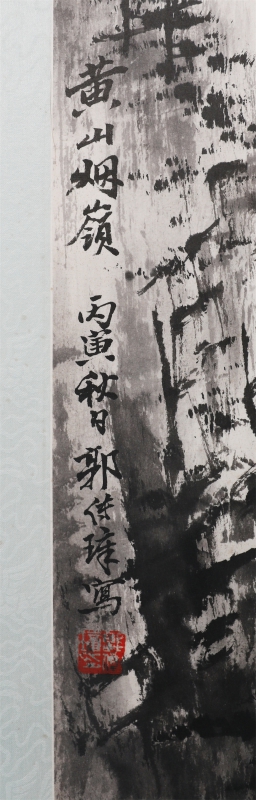 黄山烟嶺 丙寅秋日郭传璋寫